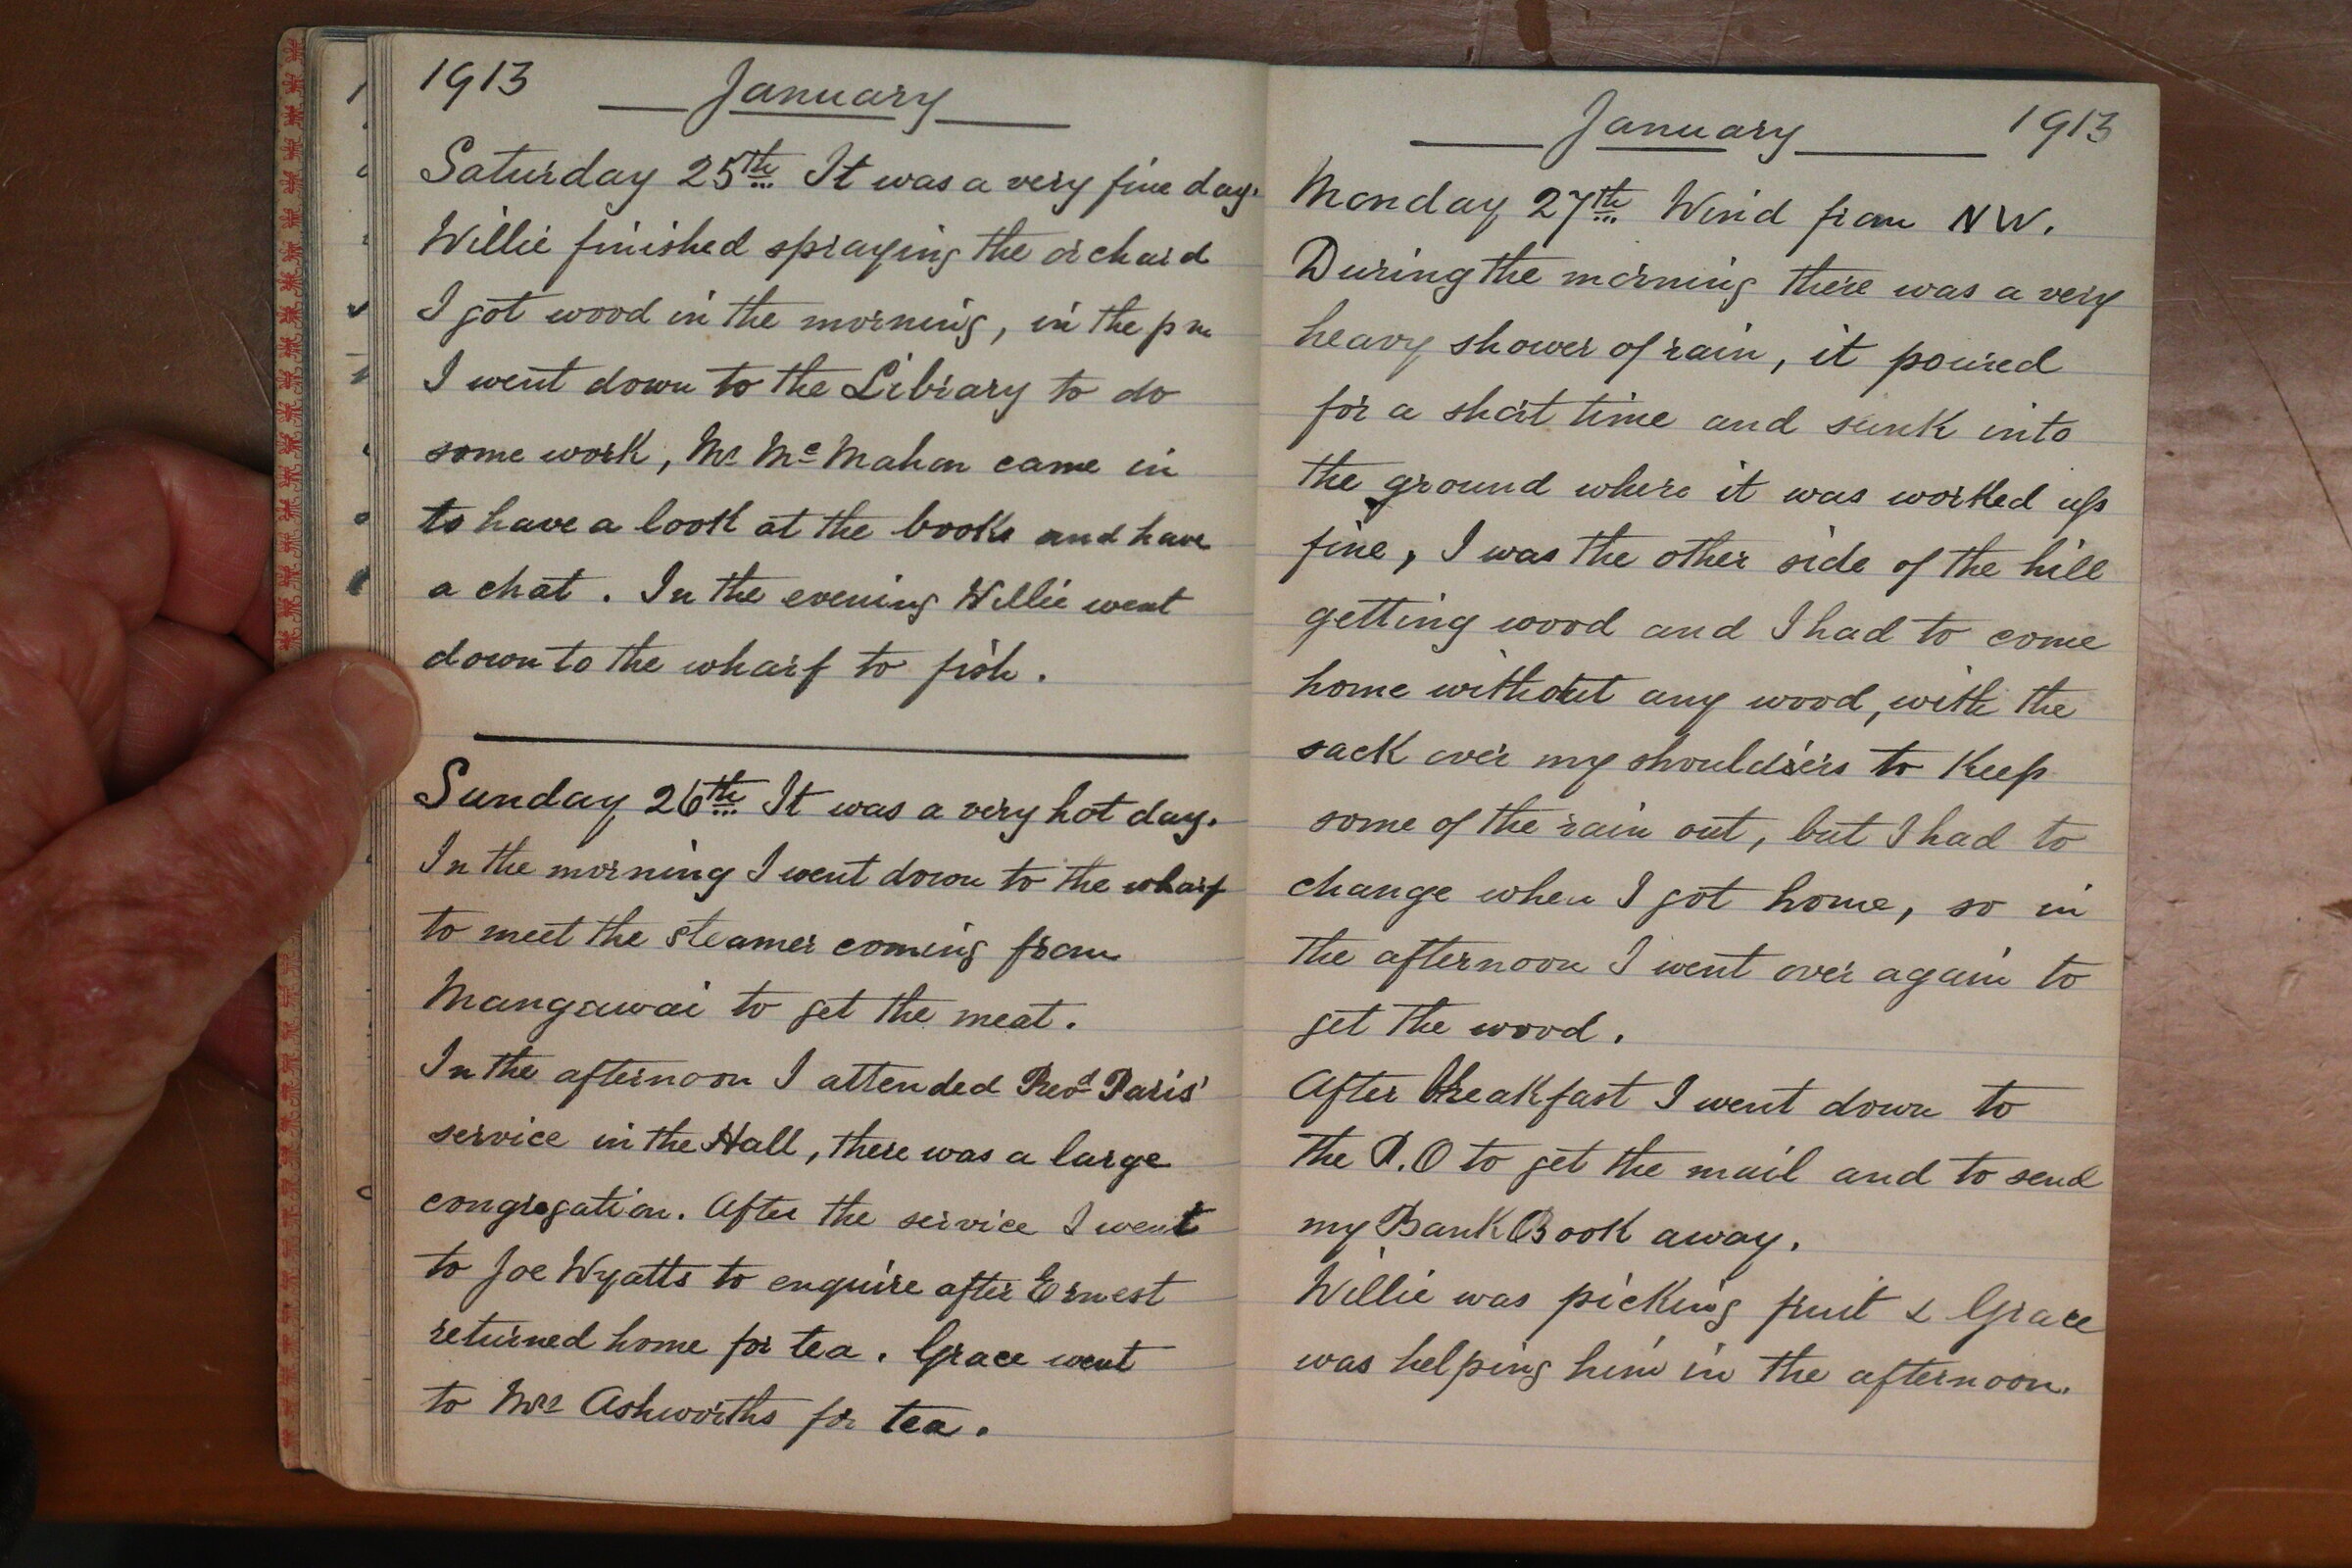 1913 January
Saturday 25th It was a very fine day.
Willie finished spraying the orchard
I got wood in the morning, in the pm
I went down to the Library to do
some work, Mr McMahon came in
to have a look at the books and have
a chat. In the evening Willie went
down to the wharf to fish.
Sunday 26th It was a very hot day.
In the morning I went down to the wharf
to meet the steamer coming from
Mangawai to get the meat.
In the afternoon I attended Revd Paris'
service in the Hall, there was a large
congregation. After the service I went
to Joe Wyatts to enquire after Ernest
returned home for tea. Grace went
to Mrs Ashworths for tea.
January 1913
Monday 27th Wind from NW.
During the morning there was a very
heavy shower of rain, it poured
for a short time and sunk into
the ground where it was worked up
fine, I was the other side of the hill
getting wood and I had to come
home without any wood, with the
sack over my shoulders to keep
some of the rain out, but I had to
change when I got home, so in
the afternoon I went over again to
get the wood.
After breakfast I went down to
the P.O to get the mail and to send
my Bank Book away.
Willie was picking fruit & Grace
was helping him in the afternoon.